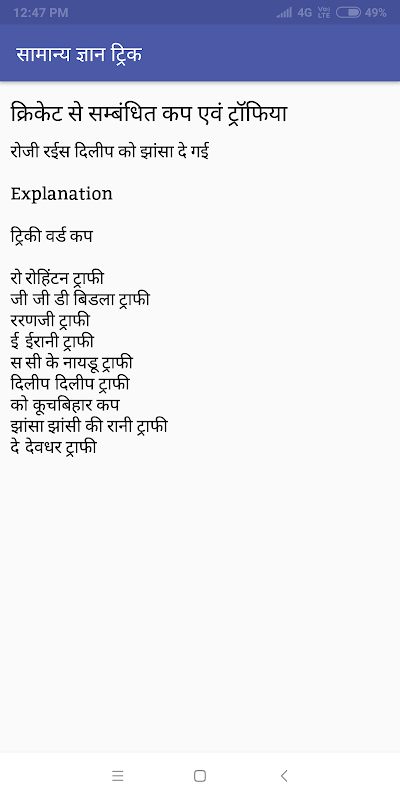 12:47 PM 4G VoLTE 49%
सामान्य ज्ञान ट्रिक
क्रिकेट से सम्बंधित कप एवं ट्रॉफिया
रोजी रईस दिलीप को झांसा दे गई
Explanation
ट्रिकी वर्ड कप
रो रोहिंटन ट्राफी
जी जी डी बिडला ट्राफी
ररणजी ट्राफी
ई ईरानी ट्राफी
स सी के नायडू ट्राफी
दिलीप दिलीप ट्राफी
को कूचबिहार कप
झांसा झांसी की रानी ट्राफी
दे देवधर ट्राफी